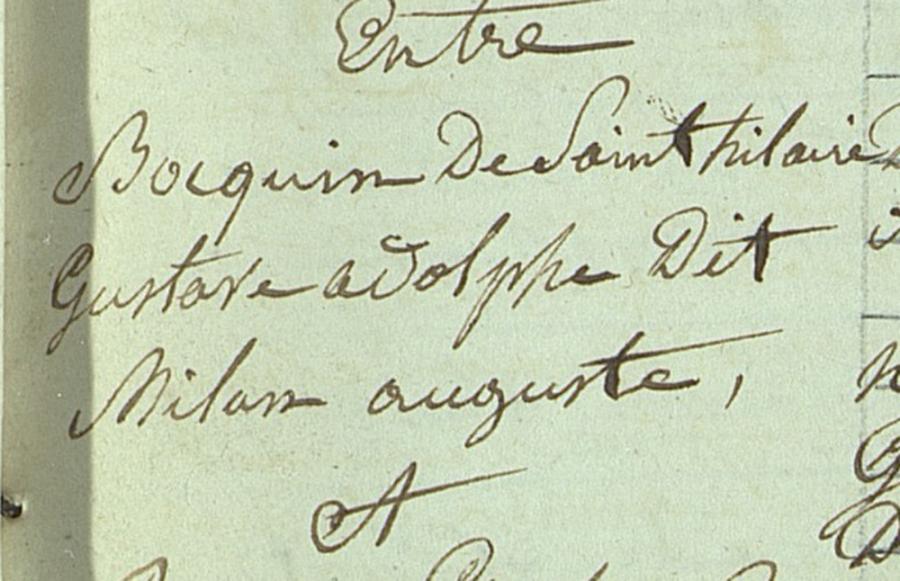 Entre
Bocquin De Saint hilaire
Gustave adolphe Dit
Milan auguste,
A